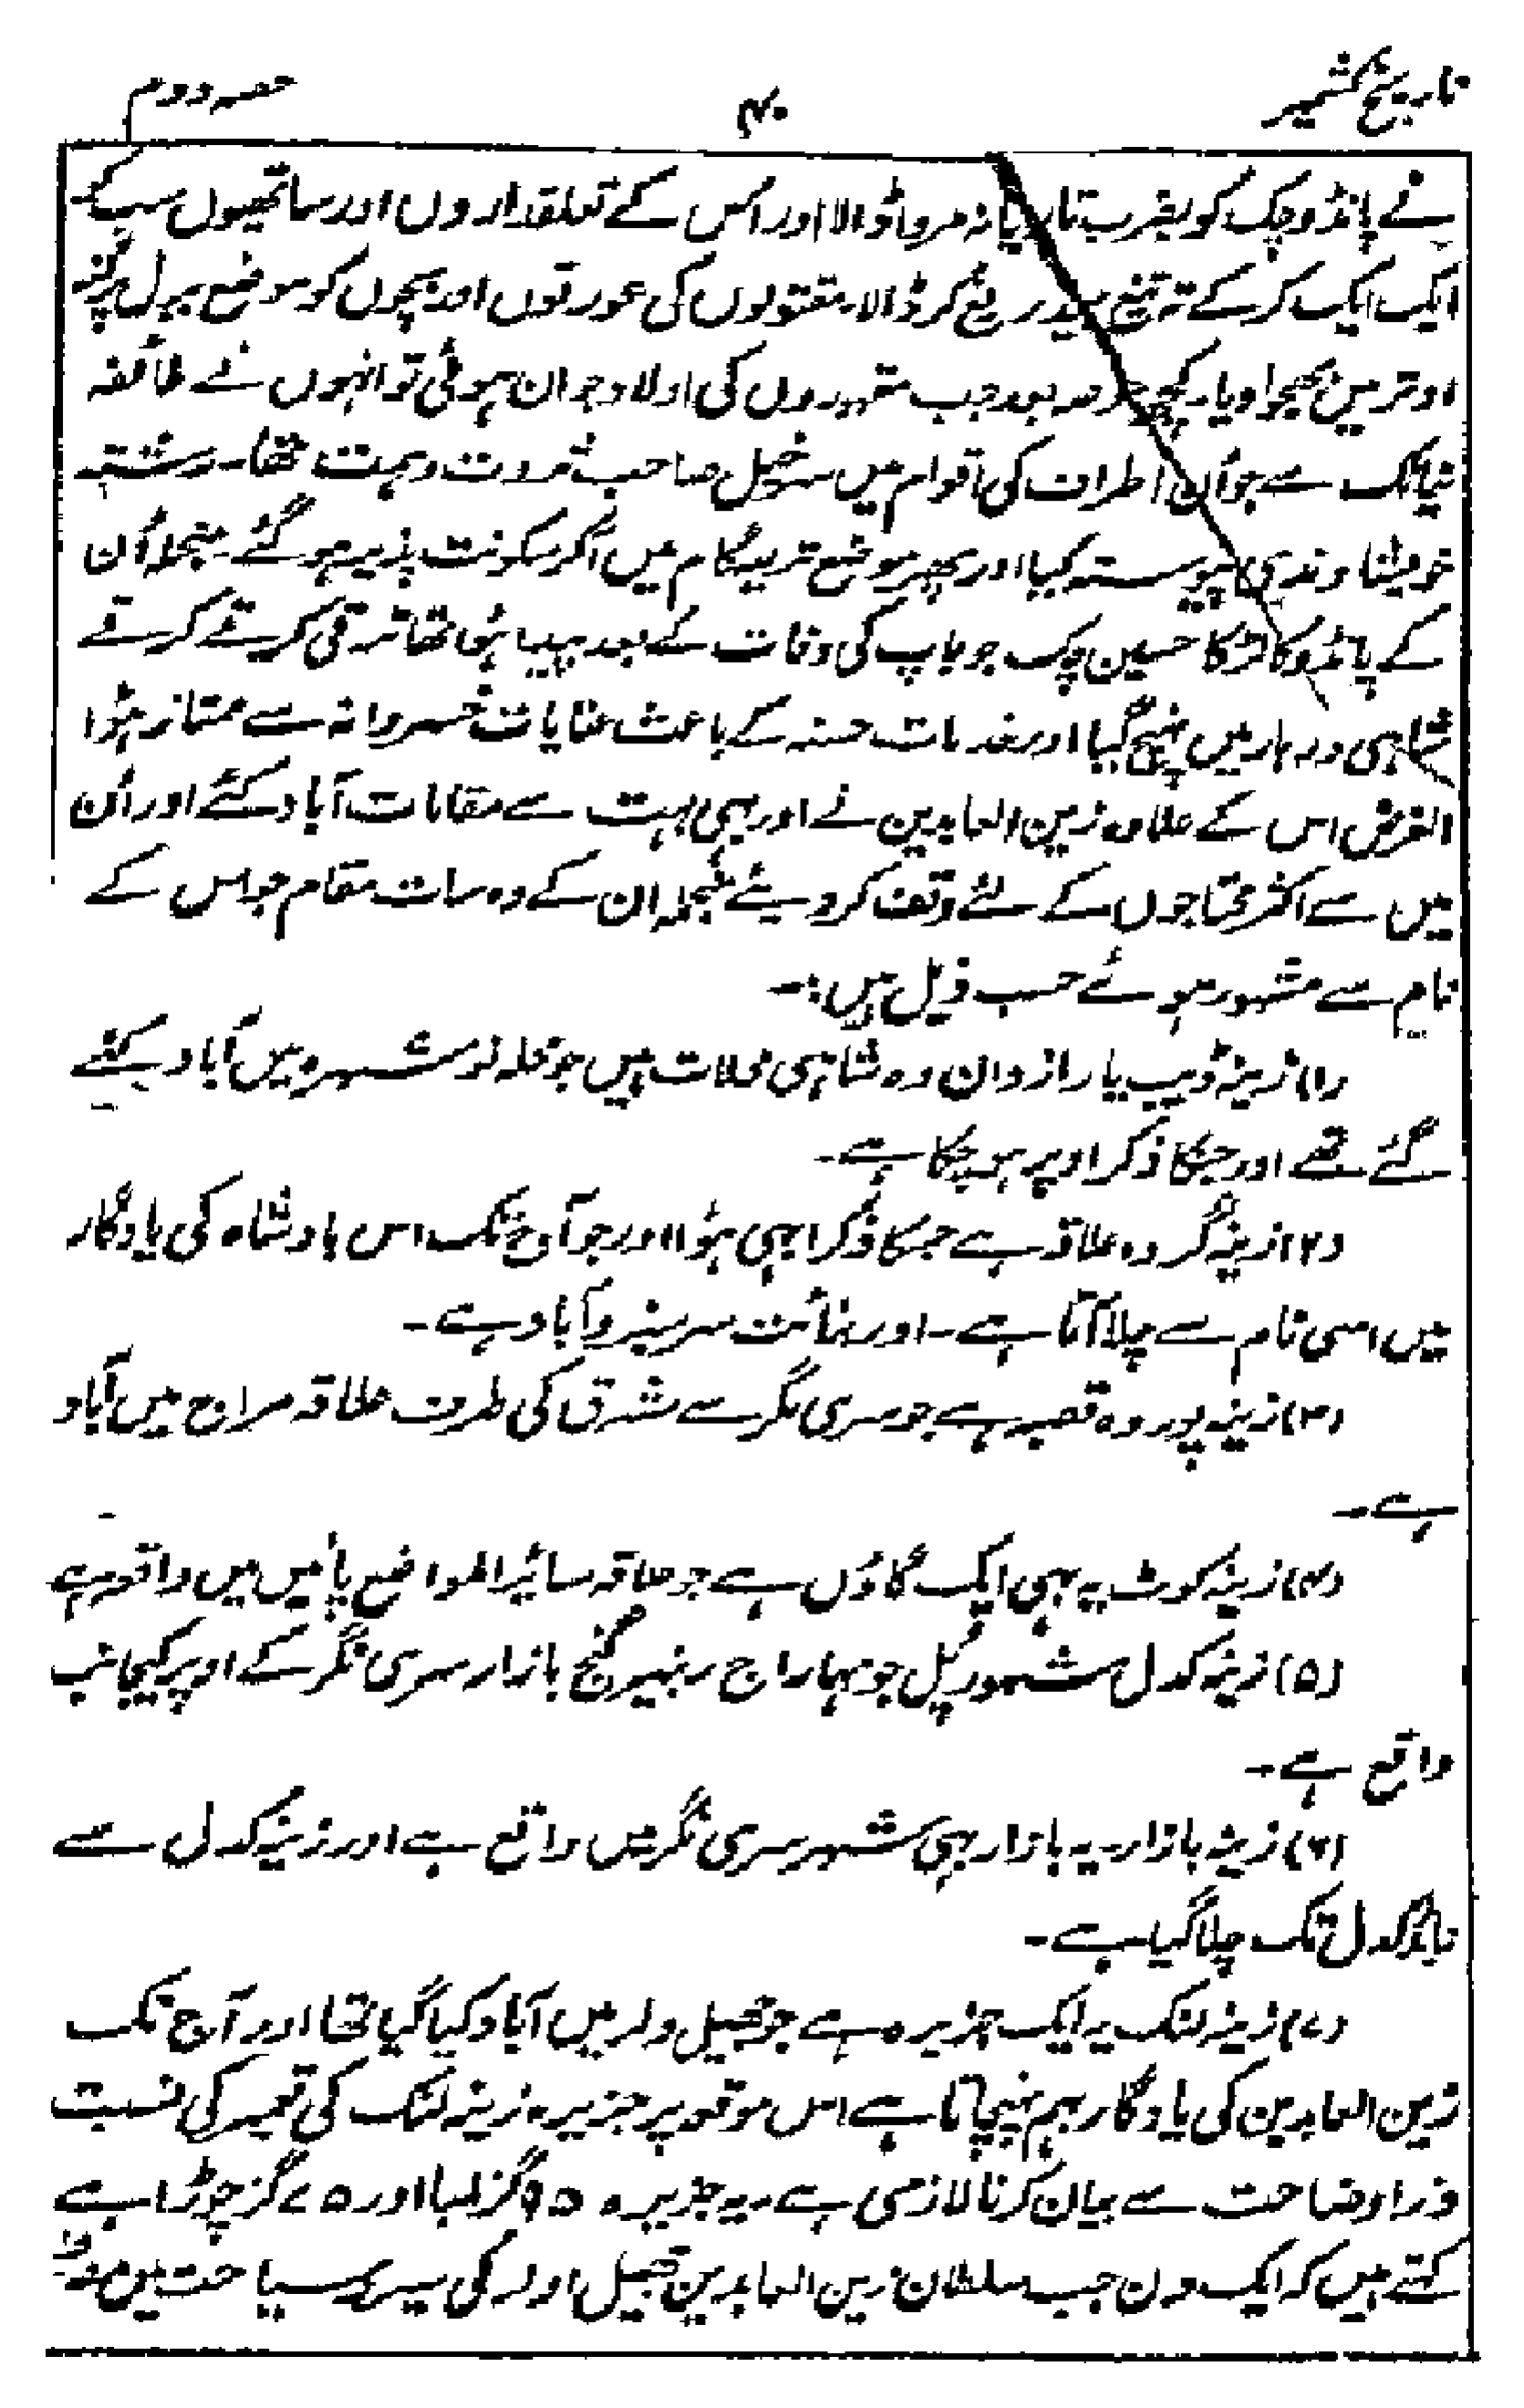 تاریخ کشمیر
۴۰
حصہ دوم
نے پانڈو چک کو بضرب تازیانہ مروا ڈالا اور اس کے تعلقداروں اور ساتھیوں سب کو
ایک ایک کر کے تہ تیغ بیدریغ کر ڈالا۔ مقتولوں کی عورتوں اور بچوں کو موضع بیرل پرگنہ
اوتر میں بھجوا دیا۔ کچھ عرصہ بعد جب مقہوروں کی اولاد جوان ہوئی تو انہوں نے طائفہ
نیانک سے جو اُن اطراف کی اقوام میں سرخیل صاحب ثروت و ہمت تھا۔ رشتہ
خویشاوندی پیوستہ کیا اور پھر موضع تریگام میں آکر سکونت پذیر ہو گئے۔ منجملہ اُن
کے پانڈو کا لڑکا حسین چک جو باپ کی وفات کے بعد پیدا ہُوا تھا ترقی کرتے کرتے
شاہی دربار میں پہنچ گیا اور خدمات حسنہ کے باعث عنایات خسروانہ سے ممتاز ہُوا
الغرض اس کے علاوہ زین العابدین نے اور بھی بہت سے مقامات آباد کئے اور اُن
میں سے اکثر محتاجوں کے لئے وقف کر دیئے منجملہ ان کے وہ سات مقام جو اس کے
نام سے مشہور ہوئے حسب ذیل ہیں:۔
(۱) زینہ ڈیب یا رازدان وہ شاہی محلات ہیں جو محلہ نوشہرہ میں آباد کئے
گئے تھے اور جنکا ذکر اوپر ہو چکا ہے۔
(۲) زینہ گر وہ علاقہ ہے جسکا ذکر ابھی ہوُا اور جو آج تک اس بادشاہ کی یادگار
میں اسی نام سے چلا آتا ہے۔ اور نہائت سرسبز و آباد ہے۔
(۳) زینہ پور وہ قصبہ ہے جو سری نگر سے شرق کی طرف علاقہ مراج میں آباد
ہے۔
(۴) زینہ کوٹ یہ بھی ایک گاؤں ہے جو علاقہ سائیر المواضع پائیں میں واقعہ ہے
(۵) زینہ کدل مشہور پُل جو مہاراج رنبیر گنج بازار سری نگر کے اوپر کیجانب
واقع ہے۔
(۶) زینہ بازار۔ یہ بازار بھی شہر سری نگر میں واقع ہے اور زینہ کدل سے
کدل تک چلا گیا ہے۔
(۷) زینہ لنک یہ ایک جزیرہ ہے جو جھیل ولر میں آباد کیا گیا تھا اور آج تک
زین العابدین کی یادگار بہم پہنچاتا ہے اس موقعہ پر جزیرہ زینہ لنک کی تعمیر کی نسبت
ذرا وضاحت سے بیان کرنا لازمی ہے۔ یہ جزیرہ ۹۵ گز لمبا اور ۷۵ گز چوڑا ہے
کہتے ہیں کہ ایک دن جب سلطان زین العابدین جھیل اولر کی سیر و سیاحت میں